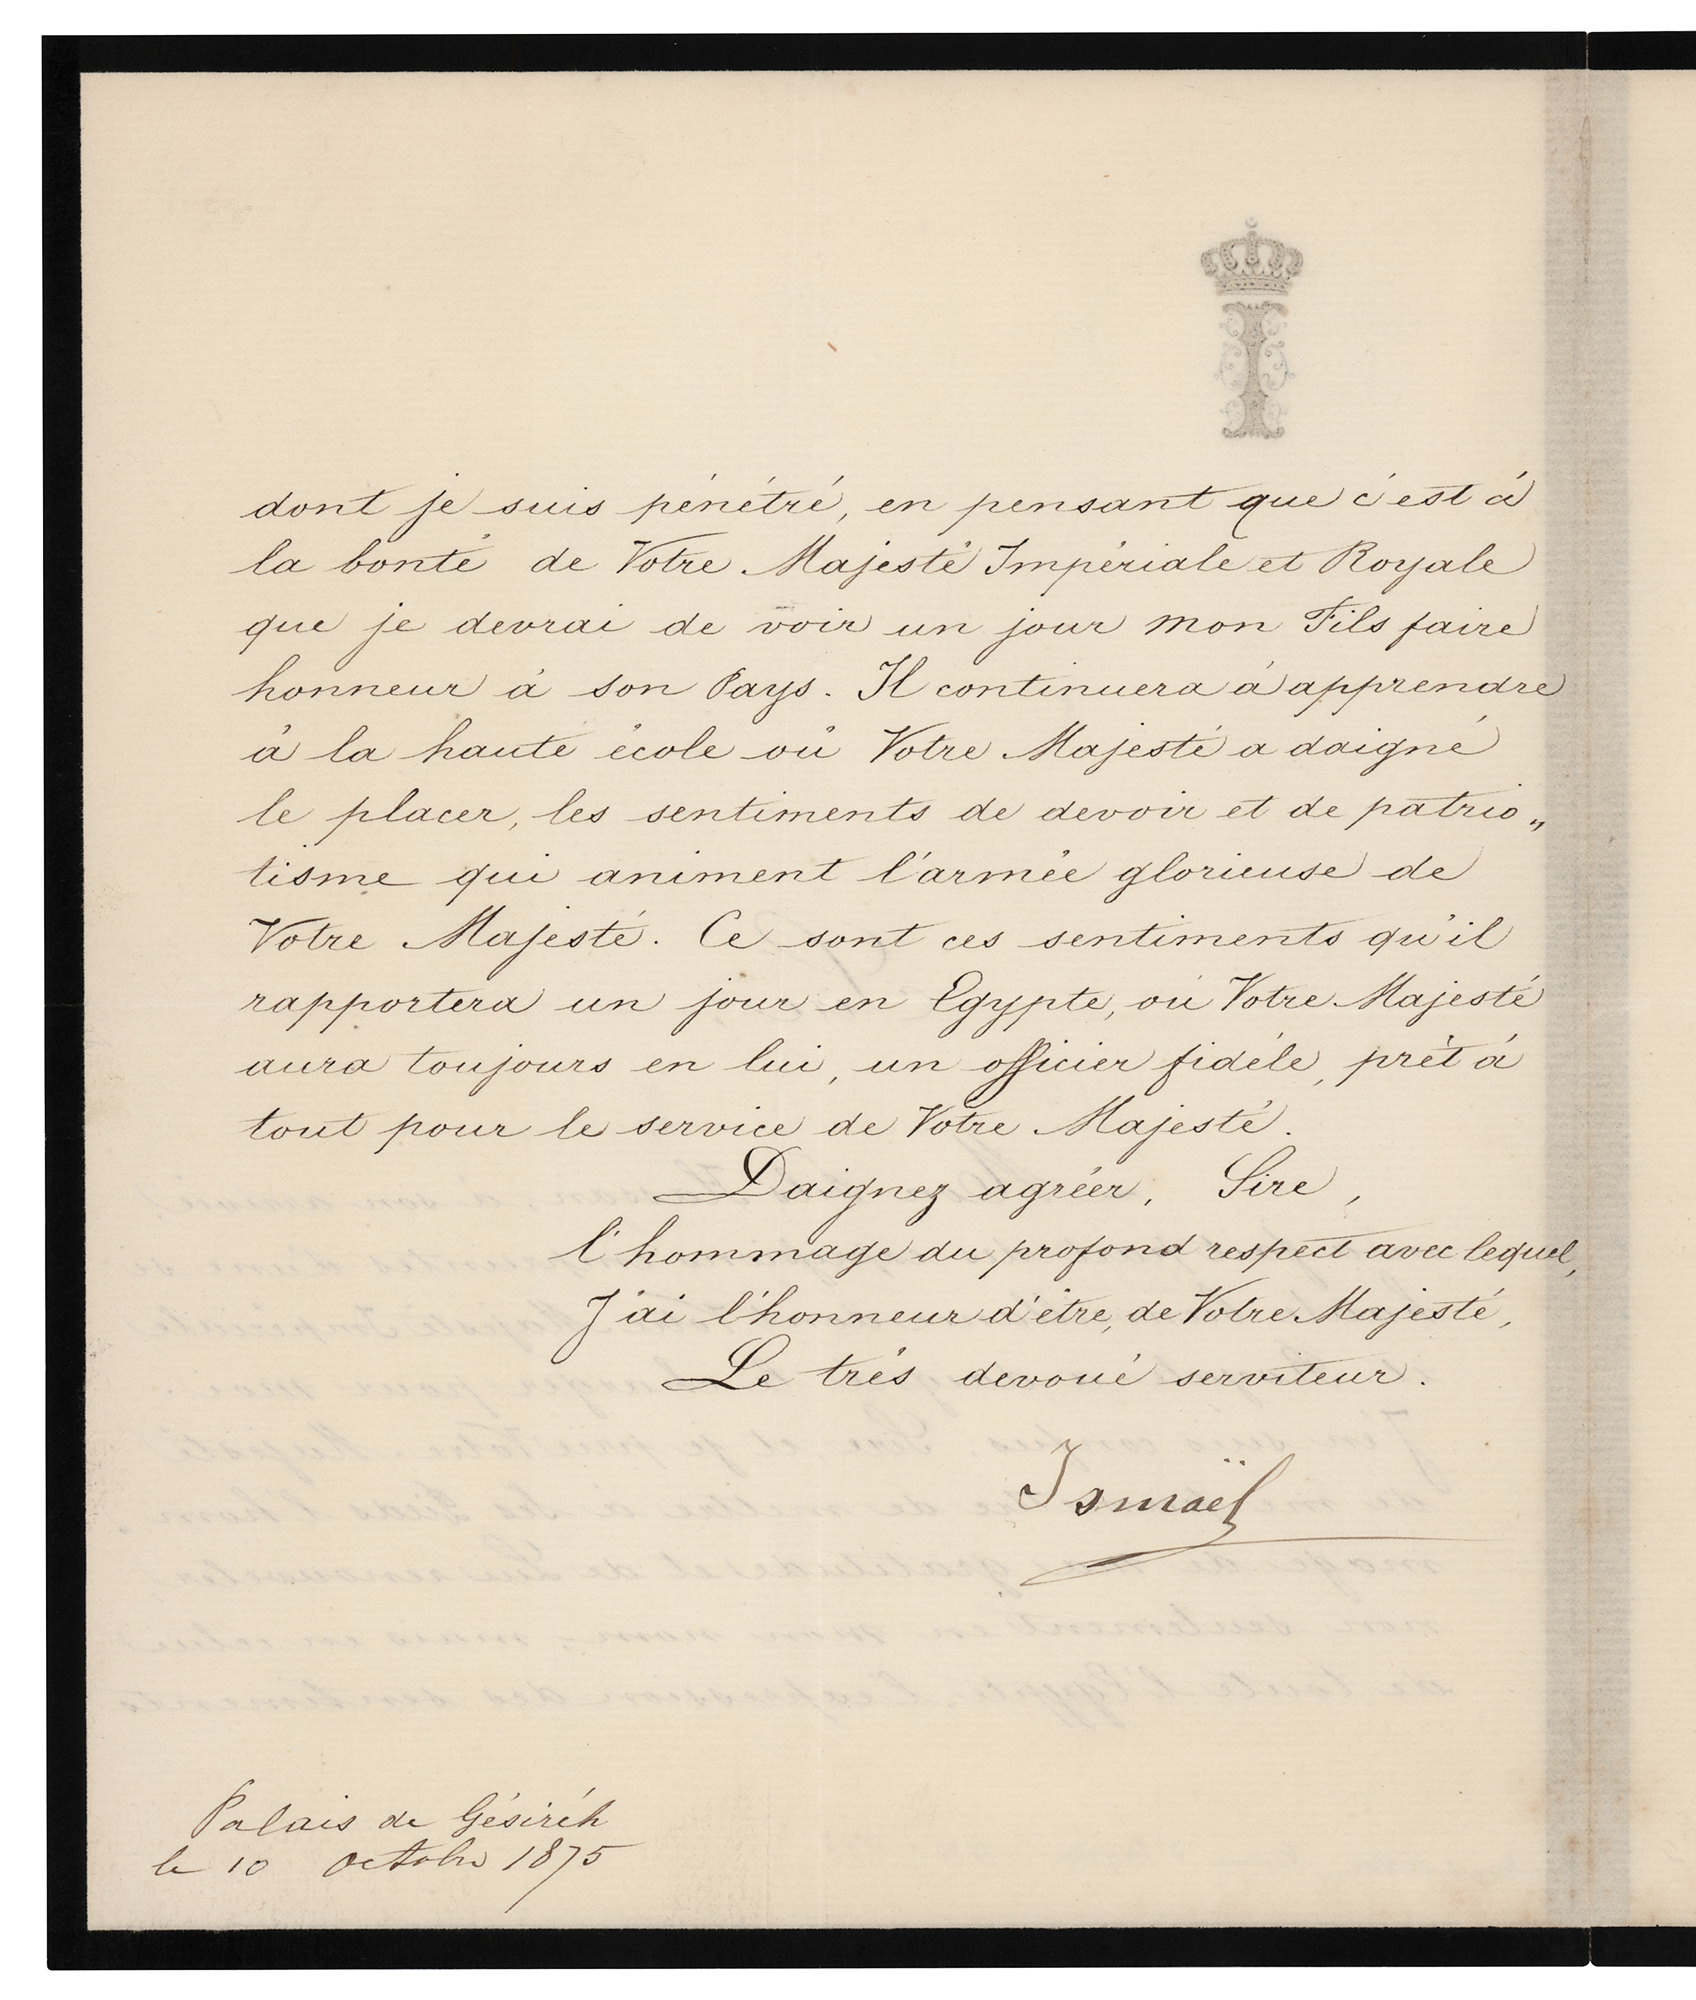 I
dont je suis pénétré, en pensant que c'est à
la bonté de Votre Majesté Impériale et Royale
que je devrai de voir un jour mon Fils faire
honneur à son Pays. Il continuera à apprendre
à la haute école où Votre Majesté a daigné
le placer, les sentiments de devoir et de patrio„
tisme qui animent l'armée glorieuse de
Votre Majesté. Ce sont ces sentiments qu'il
rapportera un jour en Egypte, où Votre Majesté
aura toujours en lui, un officier fidéle, prêt à
tout pour le service de Votre Majesté.
Daignez agréer, Sire,
l'hommage du profond respect avec lequel,
J'ai l'honneur d'être, de Votre Majesté,
Le très devoué serviteur.
Ismaël
Palais de Gésiréh
le 10 octobre 1875